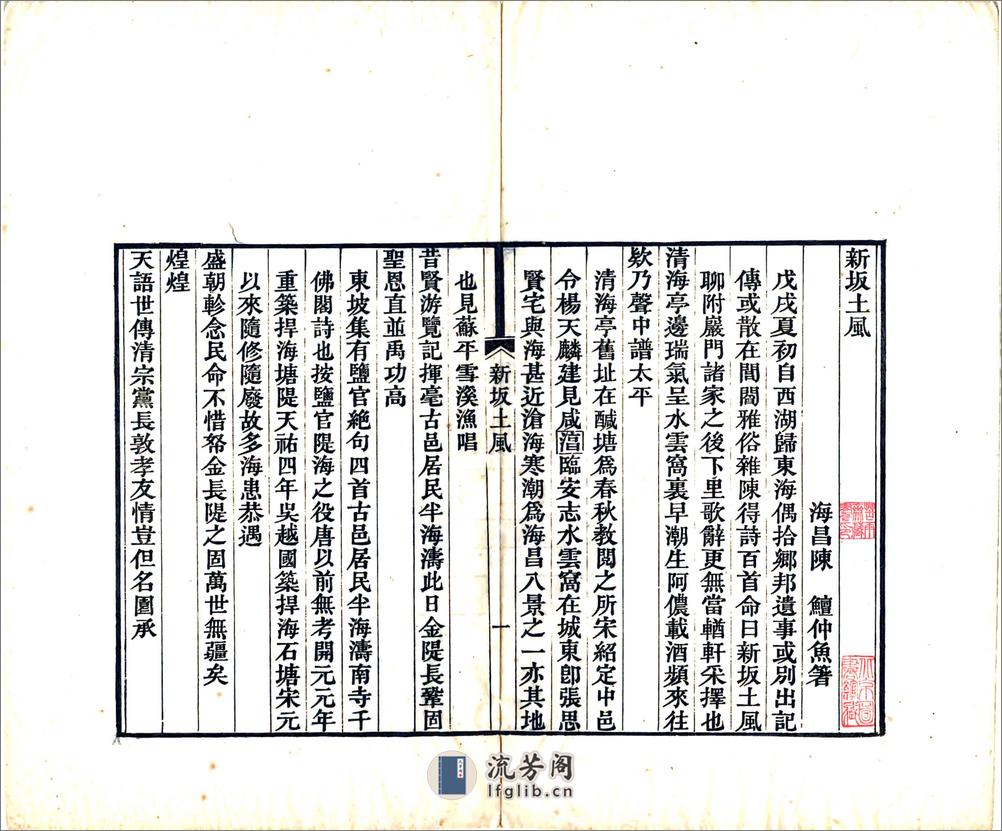 新坂土風
海昌陳　鱣仲魚箸
戊戌夏初自西湖歸東海偶拾鄉邦遺事或別出記
傳或散在閭閻雅俗雜陳得詩百首命曰新坂土風
聊附巖門諸家之後下里歌辭更無當輶軒采擇也
清海亭邊瑞氣呈水雲窩裏早潮生阿儂載酒頻來往
欸乃聲中譜太平
清海亭舊址在鹹塘爲春秋教閱之所宋紹定中邑
令楊天麟建見咸淳臨安志水雲窩在城東卽張思
賢宅與海甚近滄海寒潮爲海昌八景之一亦其地
新坂土風
一
也見蘇平雪溪漁唱
昔賢游覽記揮毫古邑居民半海濤此日金隄長鞏固
聖恩直並禹功高
東坡集有鹽官絶句四首古邑居民半海濤南寺千
佛閣詩也按鹽官隄海之役唐以前無考開元元年
重築捍海塘隄天祐四年吳越國築捍海石塘宋元
以來隨修隨廢故多海患恭遇
盛朝軫念民命不惜帑金長隄之固萬世無疆矣
煌煌
天語世傳清宗黨長敦孝友情豈但名園承
流芳阁
lfglib.cn